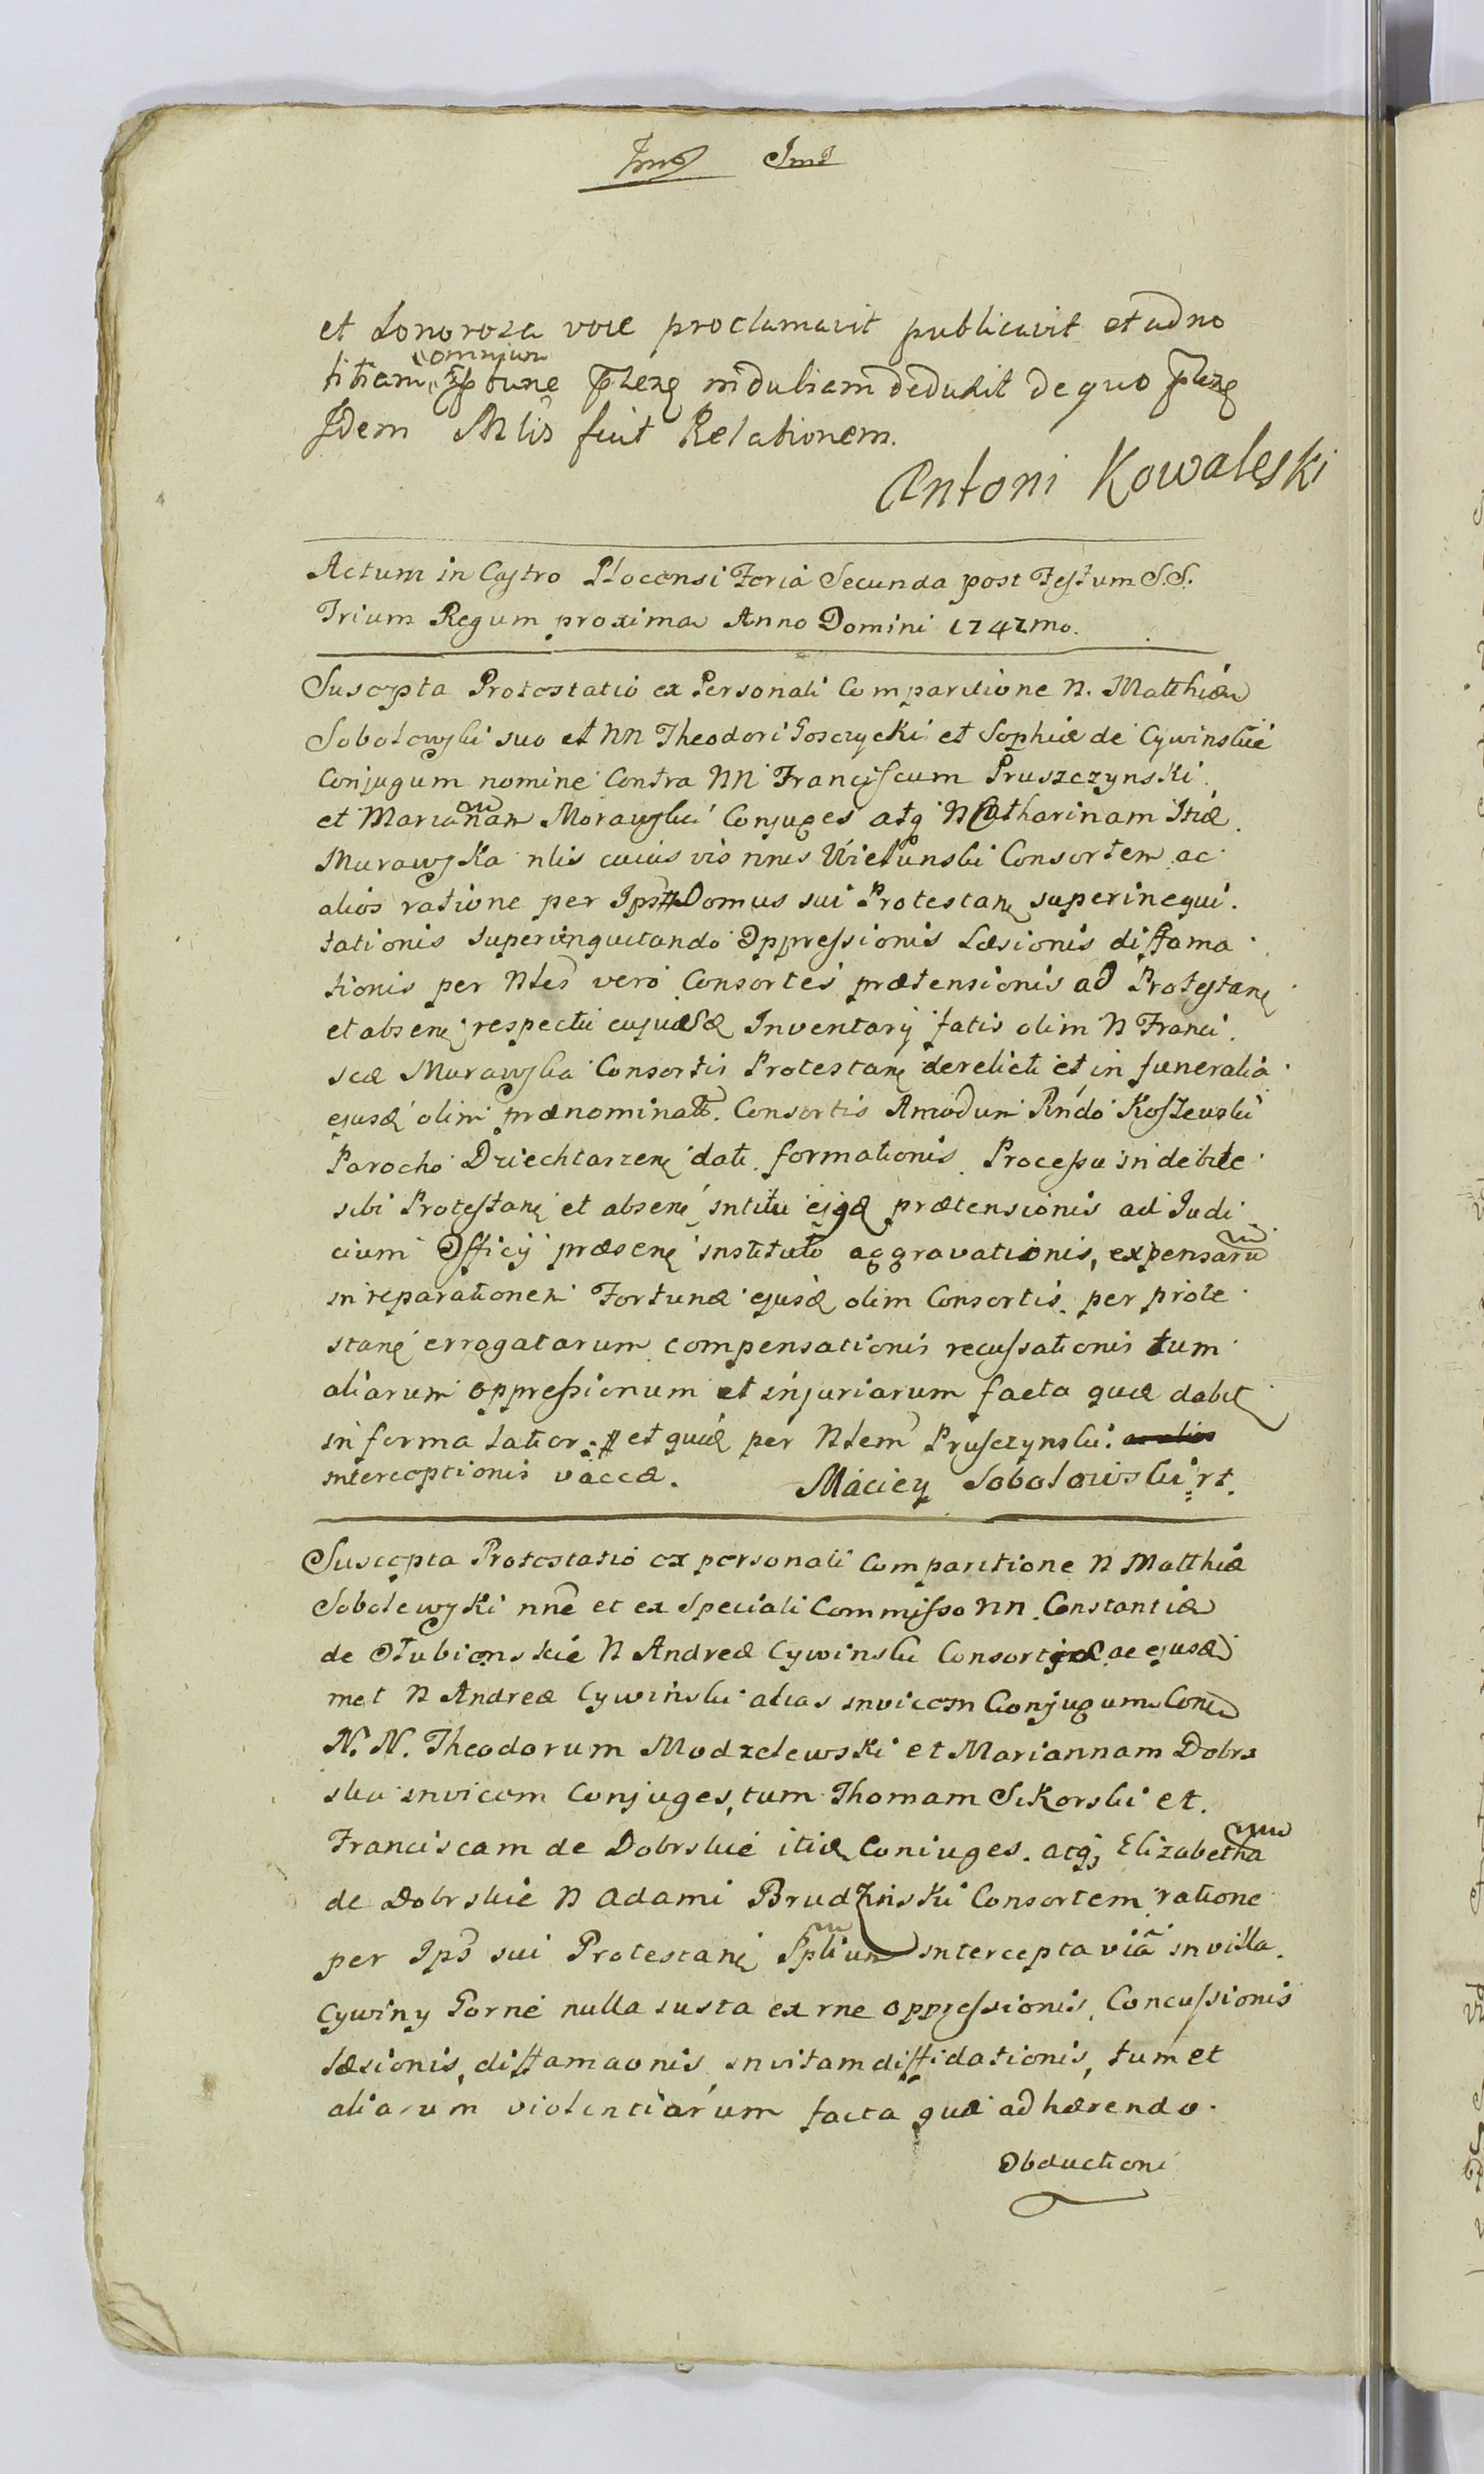 et Sonorosa voce proclamavit publicavit et ad no
titiam omnium tunc indubiam deduxit de quo
Idem Mlis fecit Relationem.
Antoni Kowaleski
Actum in Castro Plocensi Feria Secunda post Festum S.S.
Trium Regum proxima Anno Domini 1747mo.
Suscepta Protestatio ex Personali Comparitione N. Matthiæ
Sobolewski suo et NN Theodori Gosczycki et Sophiæ de Cywinskie
Conjugum nomine Contra NN Franciscum Pruszczynski
et Mariannam Morawska Conjuges atq N Catharinam Itidē
Murawska nlis cuius vis nnis Wielunski Consortem ac
alios ratione per Ipsā Domus sui Protestanē superinequi
tationis superinquitando Oppressionis Læsionis diffama
tionis per Ntes vero Consortes prætensionis ad Protestanē
et absenē respectu cujusdē Inventarij fatis olim N Franci
scæ Murawska Consortis Protestanē derelicti et in funeralia
ejusdē olim prænominatæ Consortis Amodum Rndo Koszewski
Parocho Dziechtarzenē dati formationis Processu indebite
sibi Protestanē et absenē intitu ejgdē prætensionis ad Judi
cium Officij præsenē instituto aggravationis, expensaru
in reparationem Fortunæ ejusdē olim Consortis per prote
stanē errogatarum compensationis recussationis tum
aliarum oppressionum et injuriarum facta quæ dabit
in forma latior et quidē per Ntem Prusczynski ac alios
interceptionis vaccæ. Maciey Sobolowski rt.
Suscepta Protestatio ex personali Comparitione N Matthiæ
Sobolewski nne et ex Speciali Commisso NN Constantiæ
de Olubienskie N Andreæ Cywinski Consortis ac ejusdē
met N Andreæ Cywinski alias invicem Conjugum Con
N. N. Theodorum Modzelewski et Mariannam Dobrs
ska invicem Conjuges, tum Thomam Sikorski et
Franciscam de Dobrskie itidē Coniuges. atq; Elizabetha
de Dobrskie N Adami Brudzinski Consortem ratione
per Ips sui Protestanē Spliun intercepta via in villa
Cywiny Gorne nulla iusta ex rne oppressionis, Concussionis
læsionis, diffamaonis in vitam diffidationis, tum et
aliarum violentiarum facta quæ adhærendo
Obductioni